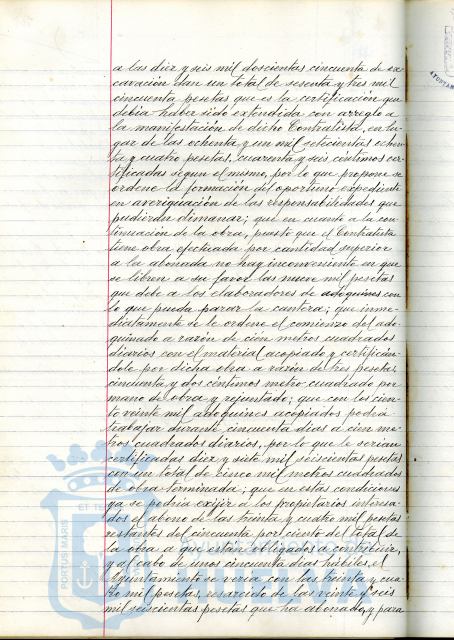 a las diez y seis mil doscientas cincuenta de ex-
cavación dan un total de sesenta y tres mil
cincuenta pesetas que es la certificación que
debia haber sido extendida con arreglo a
la manifestación de dicho Contratista, en lu-
gar de las ochenta y un mil setecientas ochen-
ta y cuatro pesetas, cuarenta y seis céntimos cer-
tificadas segun el mismo, por lo que propone se
ordene la formación del oportuno expediente
en averiguación de las responsabilidades que
pudieran dimanar; que en cuanto a la con-
tinuación de la obra, puesto que el Contratista
tiene obra efectuada por cantidad superior
a la abonada no hay inconveniente en que
se libren a su favor las nueve mil pesetas
que debe a los elaboradores de adoquines con
lo que pueda parar la cantera; que inme-
diatamente se le ordene el comienzo del ado-
quinado a razón de cien metros cuadrados
diarios con el material acopiado y certifican-
dole por dicha obra a razón de tres pesetas,
cincuenta y dos céntimos metro cuadrado por
mano de obra y rejuntado; que con los cien-
to veinte mil adoquines acopiados podrá
trabajar durante cincuenta dias a cien me-
tros cuadrados diarios, por lo que le serian
certificadas diez y siete mil seiscientas pesetas
con un total de cinco mil metros cuadrados
de obra terminada; que en estas condiciones
ya se podria exijir a los propietarios interesa-
dos el abono de las treinta y cuatro mil pesetas
restantes del cincuenta por ciento del total de
la obra a que están obligados a contribuir,
y al cabo de unos cincuenta dias hábiles, el
Ayuntamiento se veria con las treinta y cua-
tro mil pesetas, resarcido de las veinte y seis
mil seiscientas pesetas que ha abonado, y para
PORTUS MARIS
ET TE
HUELVA
AYUNTAM